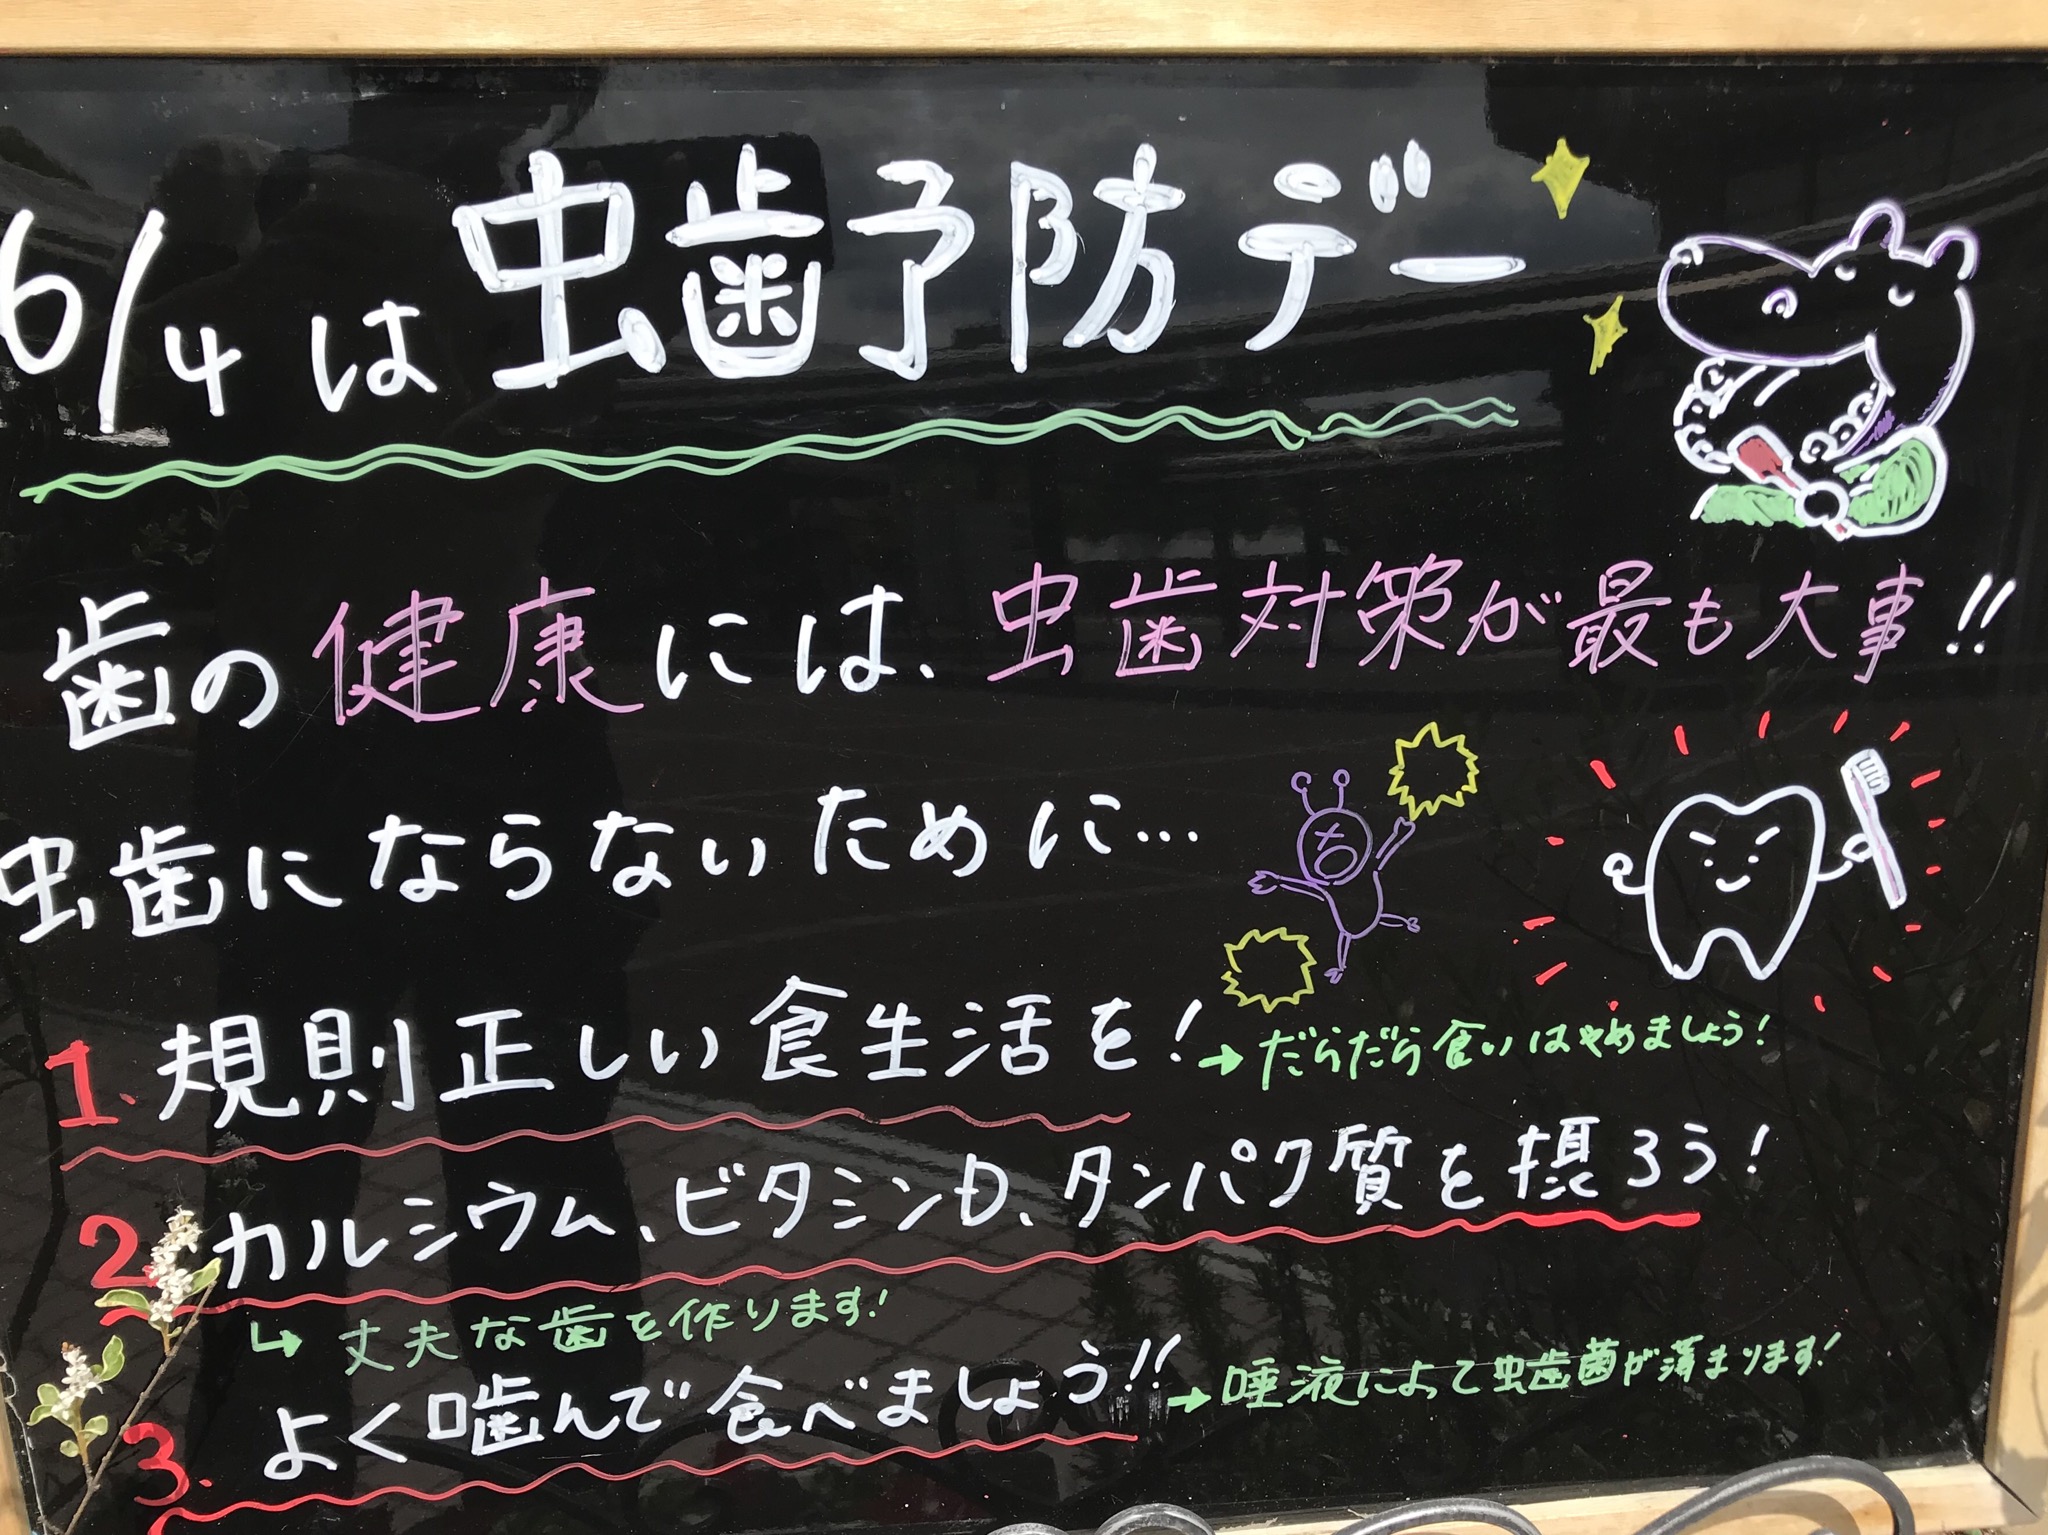 6/4は虫歯予防デー
歯の健康には、虫歯対策が最も大事!!
虫歯にならないために…
1.規則正しい食生活を!→だらだら食いはやめましょう!
2.カルシウム、ビタミンD、タンパク質を摂ろう!
↳丈夫な歯を作ります!
3.よく噛んで食べましょう!!→唾液によって虫歯菌が薄まります!